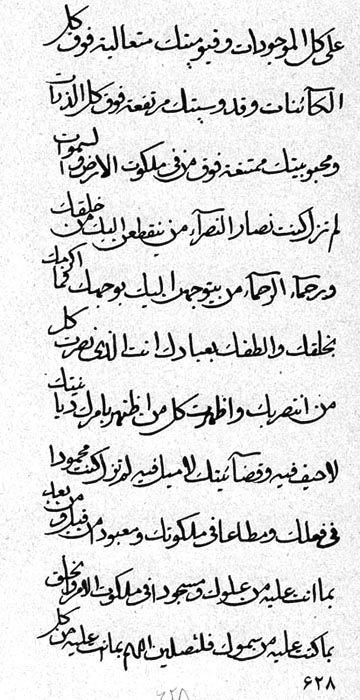 على كل الموجودات وقيوميتك متعالية فوق كل
الكائنات وقدوسيتك مرتفعة فوق كل الذرات
ومحبوبيتك ممتنعة فوق من في ملكوت الارض والسموات
لم تزل كنت نصار النصرآء من ينقطعن اليك من خلقك
ورحماء الرحماء من يتوجهن اليك بوجهك فما اكرمك
بخلقك والطفك بعبادك انت الذى نصرت كل
من انتصر بك واظهرت كل من اظهر بامرك
لا حيف فيه وقضآئيتك لا ميل فيه لم تزل كنت محمودا
في فعلك ومطاعا في ملكوتك ومعبود من قبل ومن بعد
بما انت عليه من علوك ومسجودا في ملكوت الامر والخلق
بما كنت عليه من سموك فلتصلين اللهم بما انت عليه من كل
۶۲۸